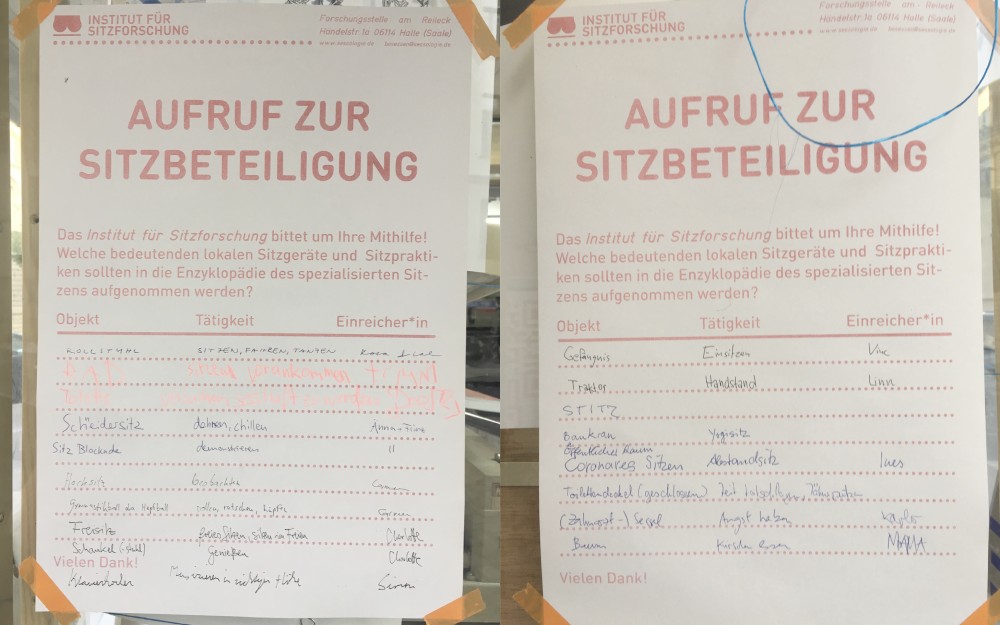 INSTITUT FÜR
SITZFORSCHUNG
Forschungsstelle am Reileck
Händelstr.1a 06114 Halle (Saale)
AUFRUF ZUR
SITZBETEILIGUNG
Das Institut für Sitzforschung bittet um Ihre Mithilfe!
Welche bedeutenden lokalen Sitzgeräte und Sitzprakti-
ken sollten in die Enzyklopädie des spezialisierten Sit-
zens aufgenommen werden?
Objekt Tätigkeit Einreicher*in
ROLLSTUHL SITZEN, FAHREN, TANZEN
Toilette
dehnen, chillen
Sitz Blockade demonstrieren 11
Hochsitz beobachten
rollen, rutschen, hüpfen
Freisitz freies Sitzen, sitzen im Freien Charlotte
Schaukel (stuhl) genießen Charlotte
Vielen Dank!
Klavierhocker Musizieren in richtiger Höhe Simon
INSTITUT FÜR
SITZFORSCHUNG
Forschungsstelle am Reileck
Händelstr.1a 06114 Halle (Saale)
AUFRUF ZUR
SITZBETEILIGUNG
Das Institut für Sitzforschung bittet um Ihre Mithilfe!
Welche bedeutenden lokalen Sitzgeräte und Sitzprakti-
ken sollten in die Enzyklopädie des spezialisierten Sit-
zens aufgenommen werden?
Objekt Tätigkeit Einreicher*in
Gefängnis Einsitzen
Traktor Handstand Linn
STITZ
Baukran Yogisitz
Öffentlicher Raum
Coronares Sitzen Abstandsitz Ines
Toilettendeckel (geschlossen) Zeit totschlagen,
(Zahnarzt-) Sessel Angst haben
Baum Kirschen essen MAMA
Vielen Dank!